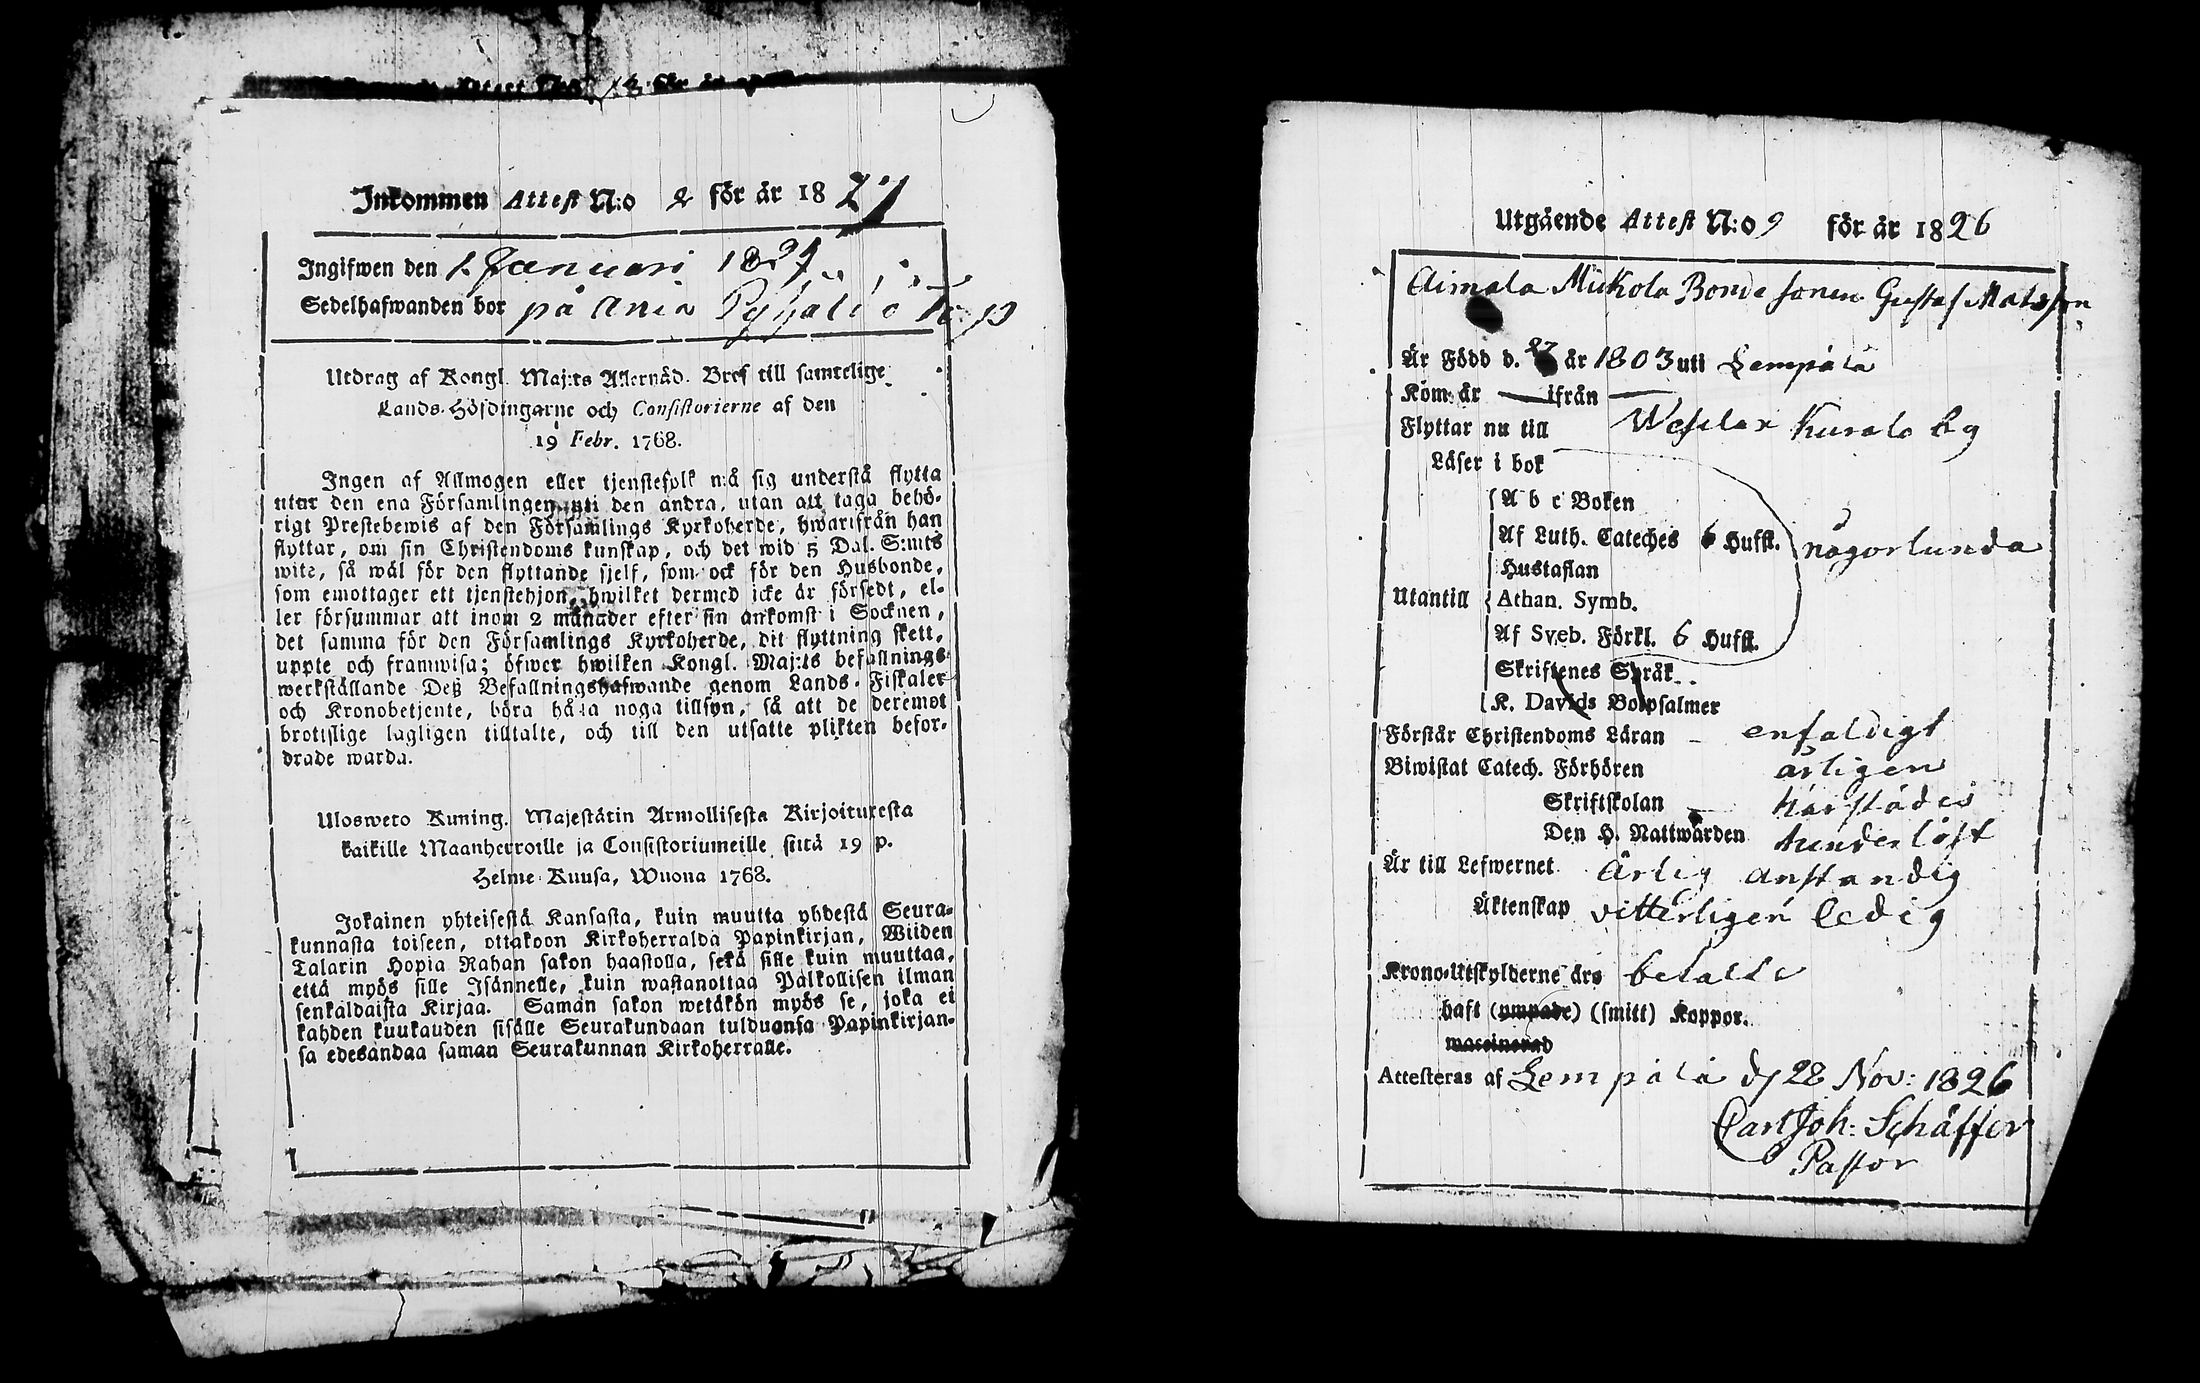 Inkommen Attest N:o 2 för år 1827
Ingifwen den 1 Januari 1827
Sedelhafwanden bor på Ania Torp
Utdrag af Kongl. Maj:ts Allernåd. Bref till samtelige
Lands-Höfdingarne och Consistorierne af den
19 Febr. 1768.
Ingen af Allmogen eller tjenstefolk må sig understå flytta
utur den ena Församlingen uti den andra, utan att taga behö-
rigt Prestebewis af den Församlings Kyrkoherde, hwarifrån han
flyttar, om sin Christendoms kunskap, och det wid 5 Dal. S:mts
wite, så wäl för den flyttande sjelf, som ock för den Husbonde,
som emottager ett tjenstehjon, hwilket dermed icke är försedt, el-
ler försummar att inom 2 månader efter sin ankomst i Socknen,
det samma för den Församlings Kyrkoherde, dit flyttning skett,
uppte och framwisa; öfwer hwilken Kongl. Maj:ts befallnings
werkställande Deß Befallningshafwande genom Lands-Fiskaler
och Kronobetjente, böra hålla noga tillsyn, så att de deremot
brottslige lagligen tilltalte, och till den utsatte plikten befor-
drade warda.
Ulosweto Kuning. Majestätin Armollisesta Kirjoituresta
kaikille Maanherroille ja Consistoriumeille siitä 19 p.
Helme-Kuusa, Wuona 1768.
Jokainen yhteisestä Kansasta, kuin muutta yhdestä Seura-
kunnasta toiseen, ottakoon Kirkoherralda Papinkirjan, Wiiden
Talarin Hopia Rahan sakon haastolla, sekä sille kuin muuttaa,
että myös sille Isännelle, kuin wastanottaa Palkollisen ilman
senkaldaista Kirjaa. Saman sakon wetäkön myös se, joka ei
kahden kuukauden sisälle Seurakundaan tulduansa Papinkirjan-
sa edesandaa saman Seurakunnan Kirkoherralle.
Utgående Attest N:o 9 för år 1826
Aimala Mickola Bonde sonen Gustaf Matsson
Är Född d. 27 år 1803 uti Lempälä
Kom år — ifrån —
Flyttar nu till Wesilax Kurala by
Läser i bok
A b c Boken
Af Luth. Cateches 6 Hufst. någorlunda
Hustaflan
Utantill Athan. Symb.
Af Sveb. Förkl. 6 Hufst.
Skriftenes Språk
K. Davids Botpsalmer
Förstår Christendoms Läran – enfaldigt
Biwistat Catech. Förhören årligen
Skriftskolan — härstädes
Den H. Nattwarden
Är till Lefwernet Ärlig anständig
Äktenskap vitterligen ledig
Krono-Utskylderne äro betalte
haft (ympade) (smitt) Koppor.
waccinerad
Attesteras af Lempälä d. 28 Nov: 1826
Carl Joh: Schäffer
Pastor